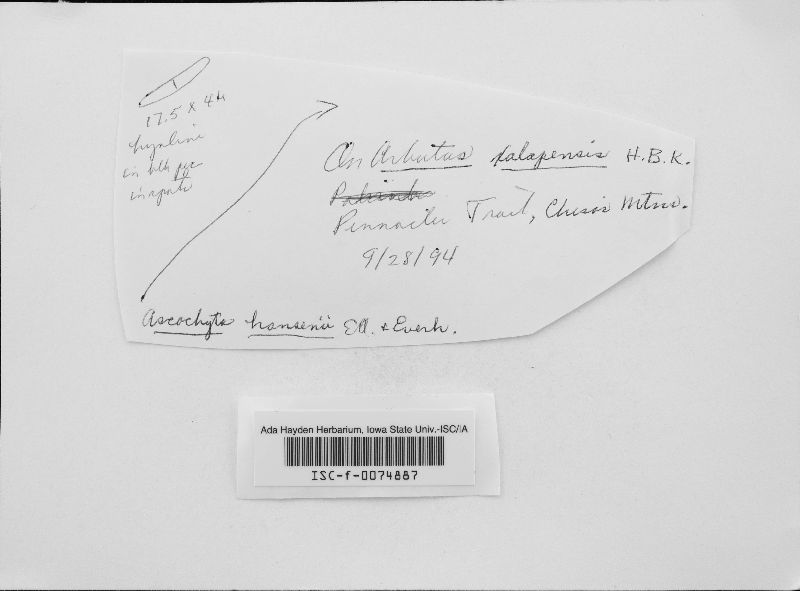 17.5 x 4µ
hyaline
in
On Arbutus xalapensis H.B.K.
Pinnacles Trail, Chisos Mtns.
9/28/94
Ascochyta hansenii Ell. & Everh.
Ada Hayden Herbarium, Iowa State Univ.-ISC/IA
ISC-f-0074887